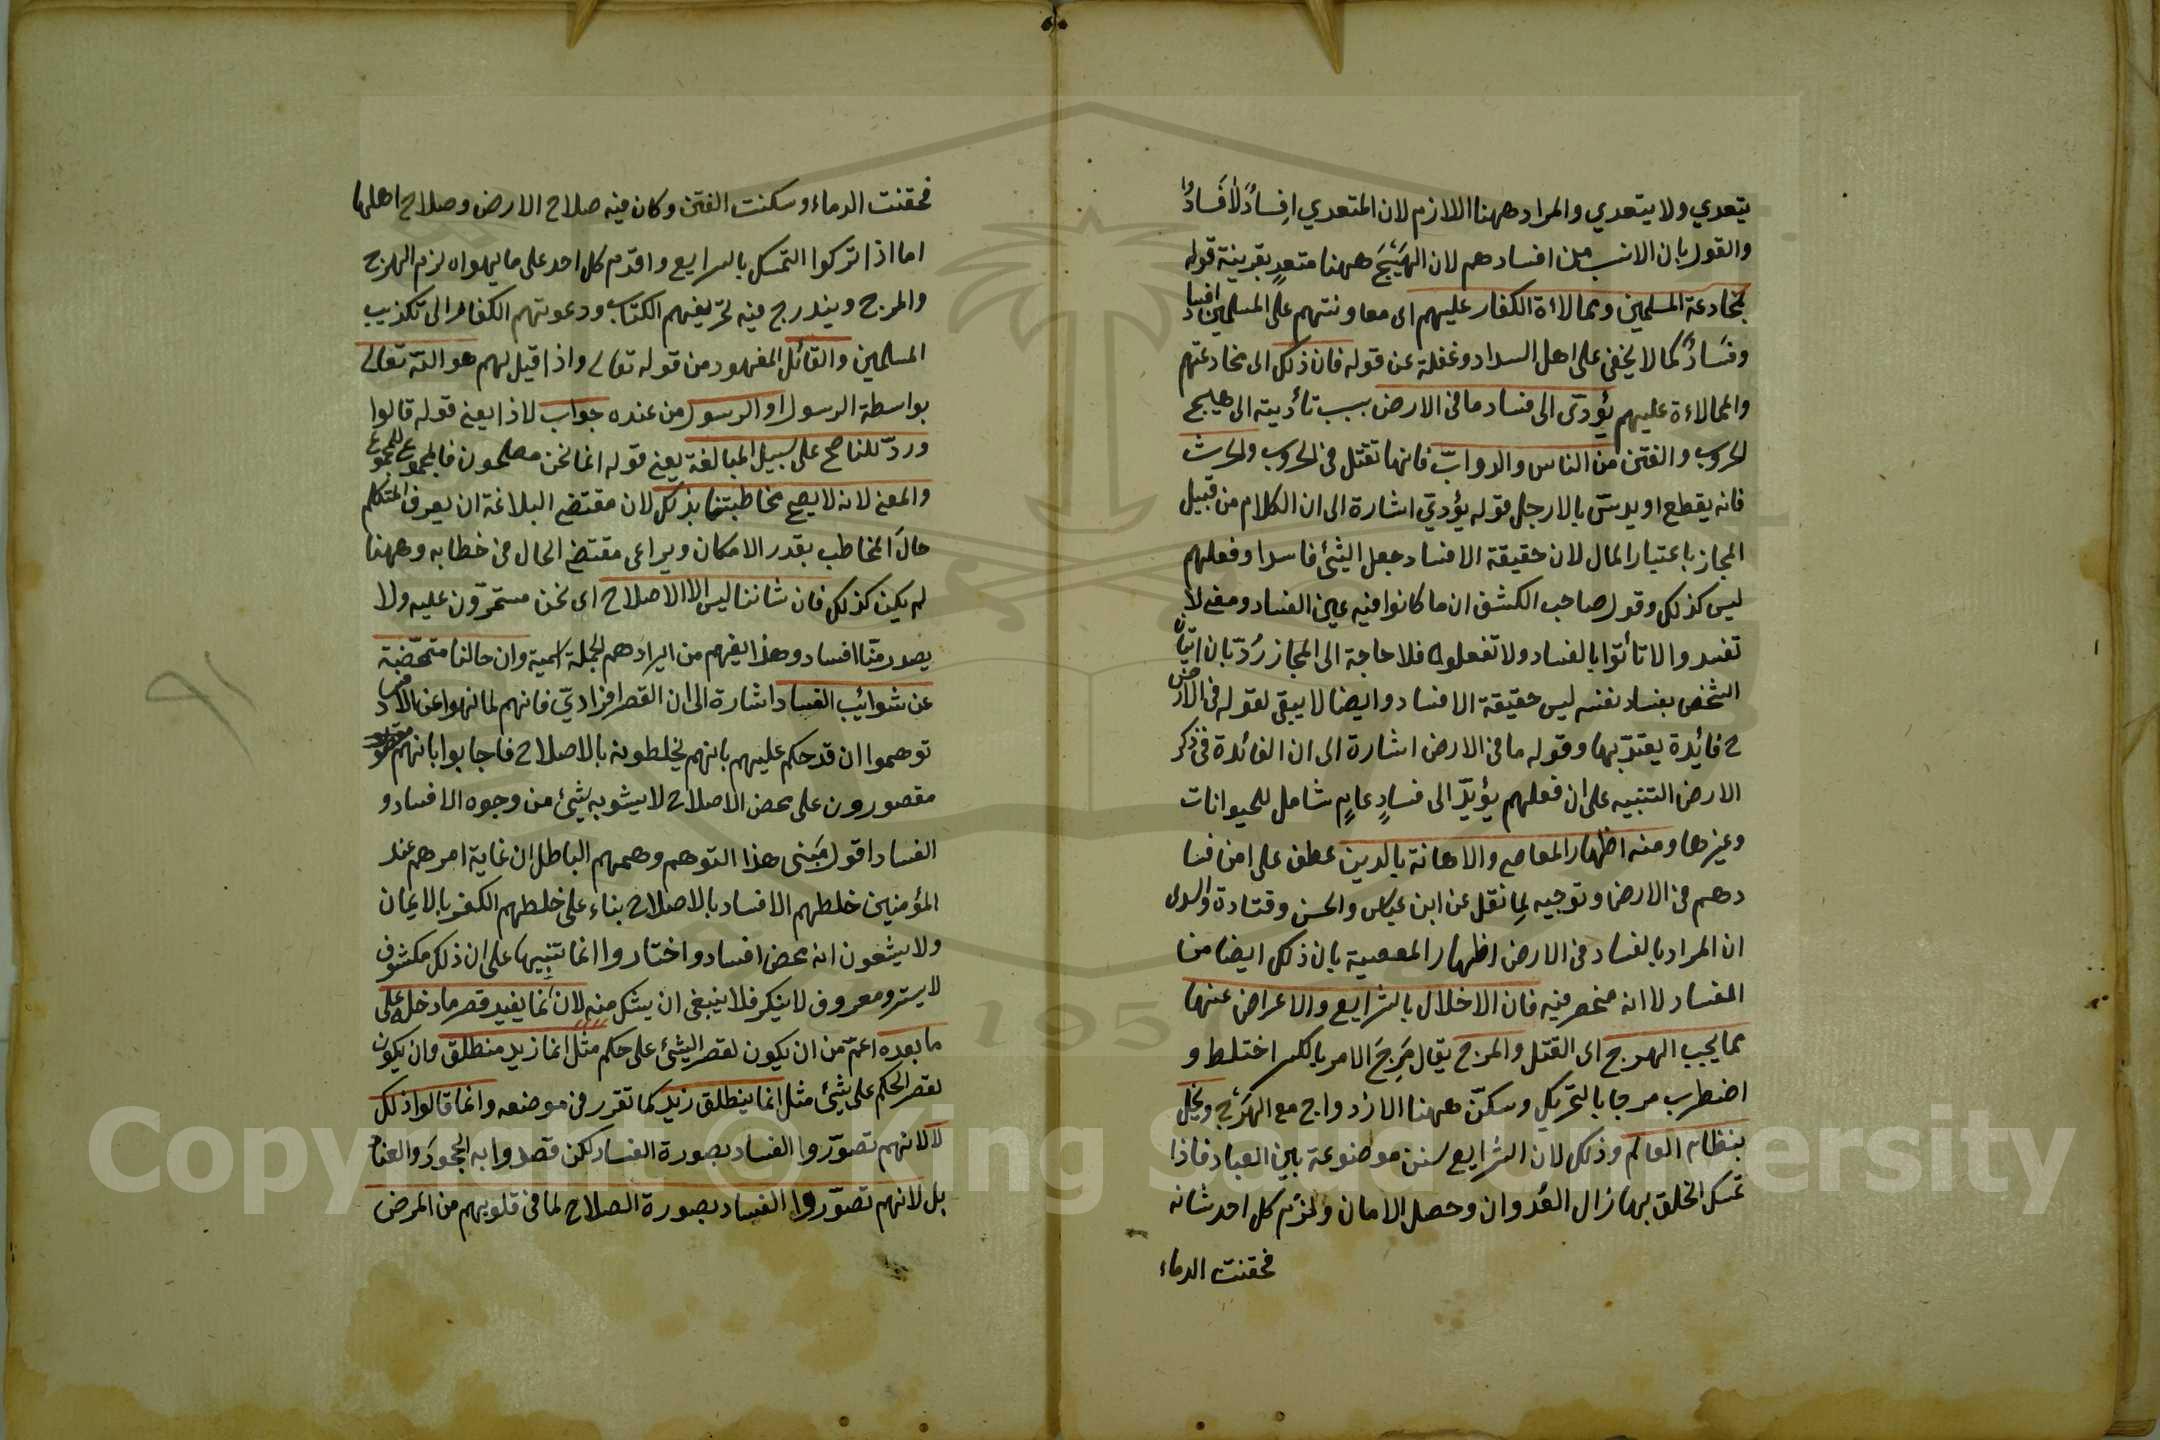 يتعدي ولا يتعدي والمراد ههنا اللازم لان المتعدي افساد لا فساد وا
والقول بان الانسب من افسادهم لان الهيج ههنا متعد بقرينة قوله
بمخادعة المسلمين وممالاءة الكفار عليهم اى معاونتهم على المسلمين افسا
وفساد كما لا يخفى على اهل السداد وغفلة عن قوله فان ذلك اى مخادعتهم
والممالاءة عليهم يؤدى الى فساد ما فى الارض بسبب تأديته الى هيج
الحروب والفتن من الناس والدواب فانها تقتل فى الحروب والحرث
فانه يقطع او يدس بالارجل قوله يؤدي اشارة الى ان الكلام من قبيل
المجاز باعتبار المال لان حقيقة الافساد جعل الشئ فاسدا وفعلهم
ليس كذلك وقول صاحب الكشف ان ما كانوا فيه عين الفساد ومعنى لا
تفسدوا لا تأتوا بالفساد ولا تفعلوا فلا حاجة الى المجاز رد بان اتيان
الشخص بفساد نفسه ليس حقيقة الافساد وايضا لا يبقى لقوله فى الارض
ح فائدة يعتد بها وقوله ما فى الارض اشارة الى ان الفائدة فى ذكر
الارض التنبيه على ان فعلهم يؤدي الى فساد عام شامل للحيوانات
وغيرها ومنه اظهار المعاصى والاهانة بالدين عطف على من فسا
دهم فى الارض وتوجيه لما نقل عن ابن عباس والحسن وقتادة والسدى
ان المراد بالفساد فى الارض اظهار المعصية بان ذلك ايضا من
الفساد لا انه منحصر فيه فان الاخلال بالشرايع والاعراض عنها
مما يجب الهرج اى القتل والمرج يقال مرج الامر بالكسر اختلط و
اضطرب مرجا بالتحريك وسكن ههنا الازدواج مع الهرج ويخل
بنظام العالم وذلك لان الشرايع سنن موضوعة بين العباد فاذا
تمسك الخلق بها زال العدوان وحصل الامان ولزم كل احد شانه
فحقنت الدماء
فحقنت الدماء وسكنت الفتن وكان فيه صلاح الارض وصلاح اهلها
اما اذا تركوا التمسك بالشرايع واقدم كل احد على ما يهواه لزم الهرج
والمرج ويندرج فيه تحريفهم الكتاب ودعوتهم الكفار الى تكذيب
المسلمين والقائل المفهود من قوله تعالى واذا قيل لهم هو الله تعالى
بواسطة الرسول او الرسول من عنده جواب لاذا يعنى قوله قالوا
ورد للناصح على سبيل المبالغة يعنى قوله انما نحن مصلحون فالمجموع للمجموع
والمعنى لانه لا يصح مخاطبتنا بذلك لان مقتضى البلاغة ان يعرف المتكلم
حال المخاطب بقدر الامكان ويراعى مقتضى الحال فى خطابه وههنا
لم يكن كذلك فان شاننا ليس الا الاصلاح اى نحن مستمرون عليه ولا
يصدر منا افساد وهذا يفهم من ايرادهم الجملة اسمية وان حالنا متمحضة
عن شوائب الفساد اشارة الى ان القصر افرادي فانهم لما نهوا عن الافساد
توهموا ان قد حكم عليهم بانهم يخلطونه بالاصلاح فاجابوا بانهم
مقصورون على محض الاصلاح لا يشوبه شئ من وجوه الافساد و
الفساد اقول مبنى هذا التوهم وهمهم الباطل ان غاية امرهم عند
المؤمنين خلطهم الافساد بالاصلاح بناء على خلطهم الكفر بالايمان
ولا يشعون انه محض افساد واختاروا انما تنبيها على ان ذلك مكشوف
لا يستر ومعروف لا ينكر فلا ينبغى ان يشك فيه لان انما يفيد قصر ما دخله على
ما بعده اعم من ان يكون لقصر الشئ على حكم مثل انما زيد منطلق وان يكون
لقصر الحكم على شئ مثل انما ينطلق زيد كما تقرر فى موضعه وانما قالوا ذلك
لا لانهم تصوروا الفساد بصورة الفساد لكن قصدوا به الجحود والعناد
بل لانهم تصوروا الفساد بصورة الصلاح لما فى قلوبهم من المرض
Copyright © King Saud University
1957